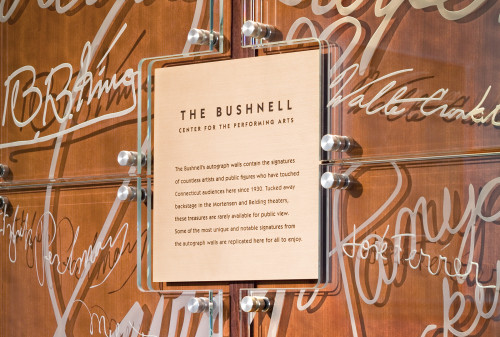 B.B. King
THE BUSHNELL
CENTER FOR THE PERFORMING ARTS
Walter Cronkite
The Bushnell's autograph walls contain the signatures
of countless artists and public figures who have touched
Connecticut audiences here since 1930. Tucked away
backstage in the Mortensen and Belding theaters,
these treasures are rarely available for public view.
Some of the most unique and notable signatures from
the autograph walls are replicated here for all to enjoy.
Itzhak Perlman
José Ferrer